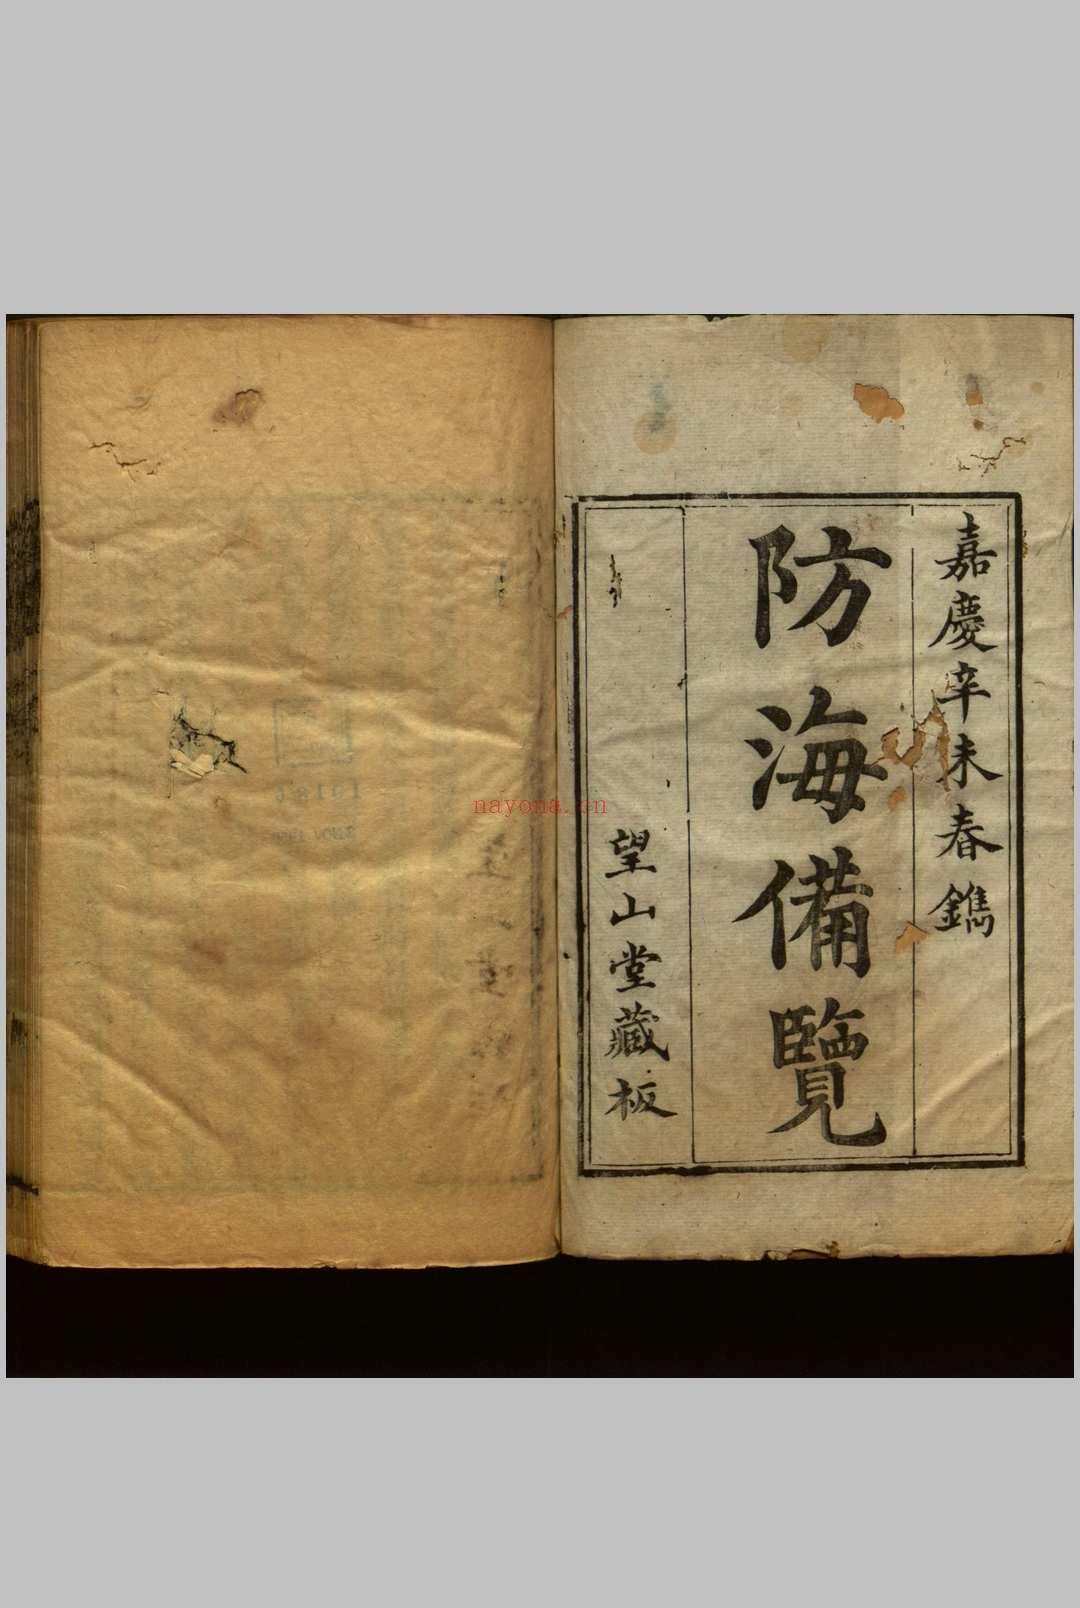 嘉慶辛未春鐫
防海備覽
望山堂藏板
nayona.cn